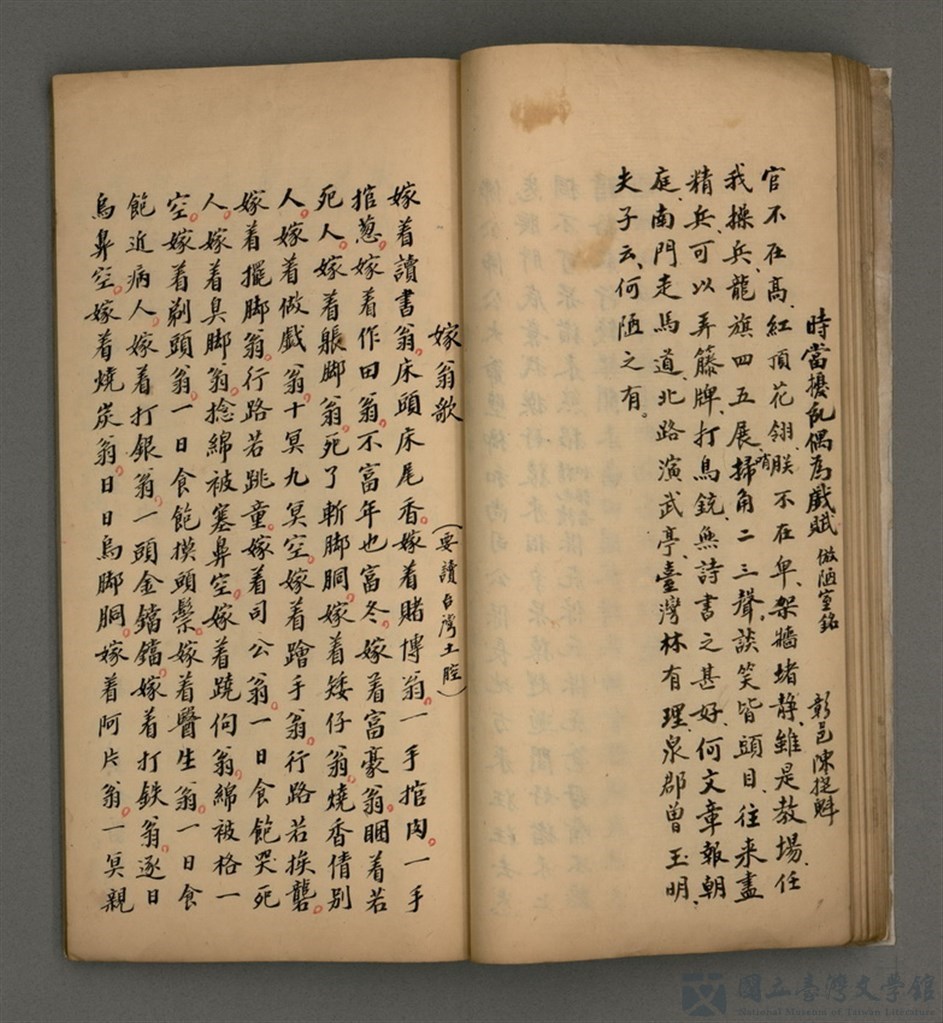 時當擾亂偶為戲賦 倣陋室銘 彰邑陳捷魁
官不在高、紅頂花翎、朕不在卑、架牆堵静、雖是教場、任
我操兵、龍旗四五展、掃角二三聲、談笑皆頭目、往来盡
哨
精兵、可以弄籐牌、打鳥銃、無詩書之甚好、何文章報朝
庭、南門走馬道、北路演武亭、臺灣林有理、泉郡曾玉明、
夫子云、何陋之有。
嫁翁歌 (要讀台灣土腔)
嫁着讀書翁。床頭床尾香。嫁着賭博翁。一手捾肉。一手
捾葱。嫁着作田翁。不富年也富冬。嫁着富豪翁。睏着若
死人。嫁着躼脚翁。死了斬脚胴。嫁着矮仔翁。燒香倩別
人。嫁着做戲翁。十冥九冥空。嫁着躊手翁。行路若挨礱。
嫁着擺脚翁。行路若跳童。嫁着司公翁。一日食飽哭死
人。嫁着臭脚翁。捻綿被塞鼻空。嫁着蹺佝翁。綿被格一
空。嫁着剃頭翁。一日食飽摸頭鬃。嫁着醫生翁。一日食
飽近病人。嫁着打銀翁。一頭金鐺鐺。嫁着打鉄翁。逐日
烏鼻空。嫁着燒炭翁。日日烏脚胴。嫁着阿片翁。一冥親
國立臺灣文學館
National Museum of Taiwan Literature